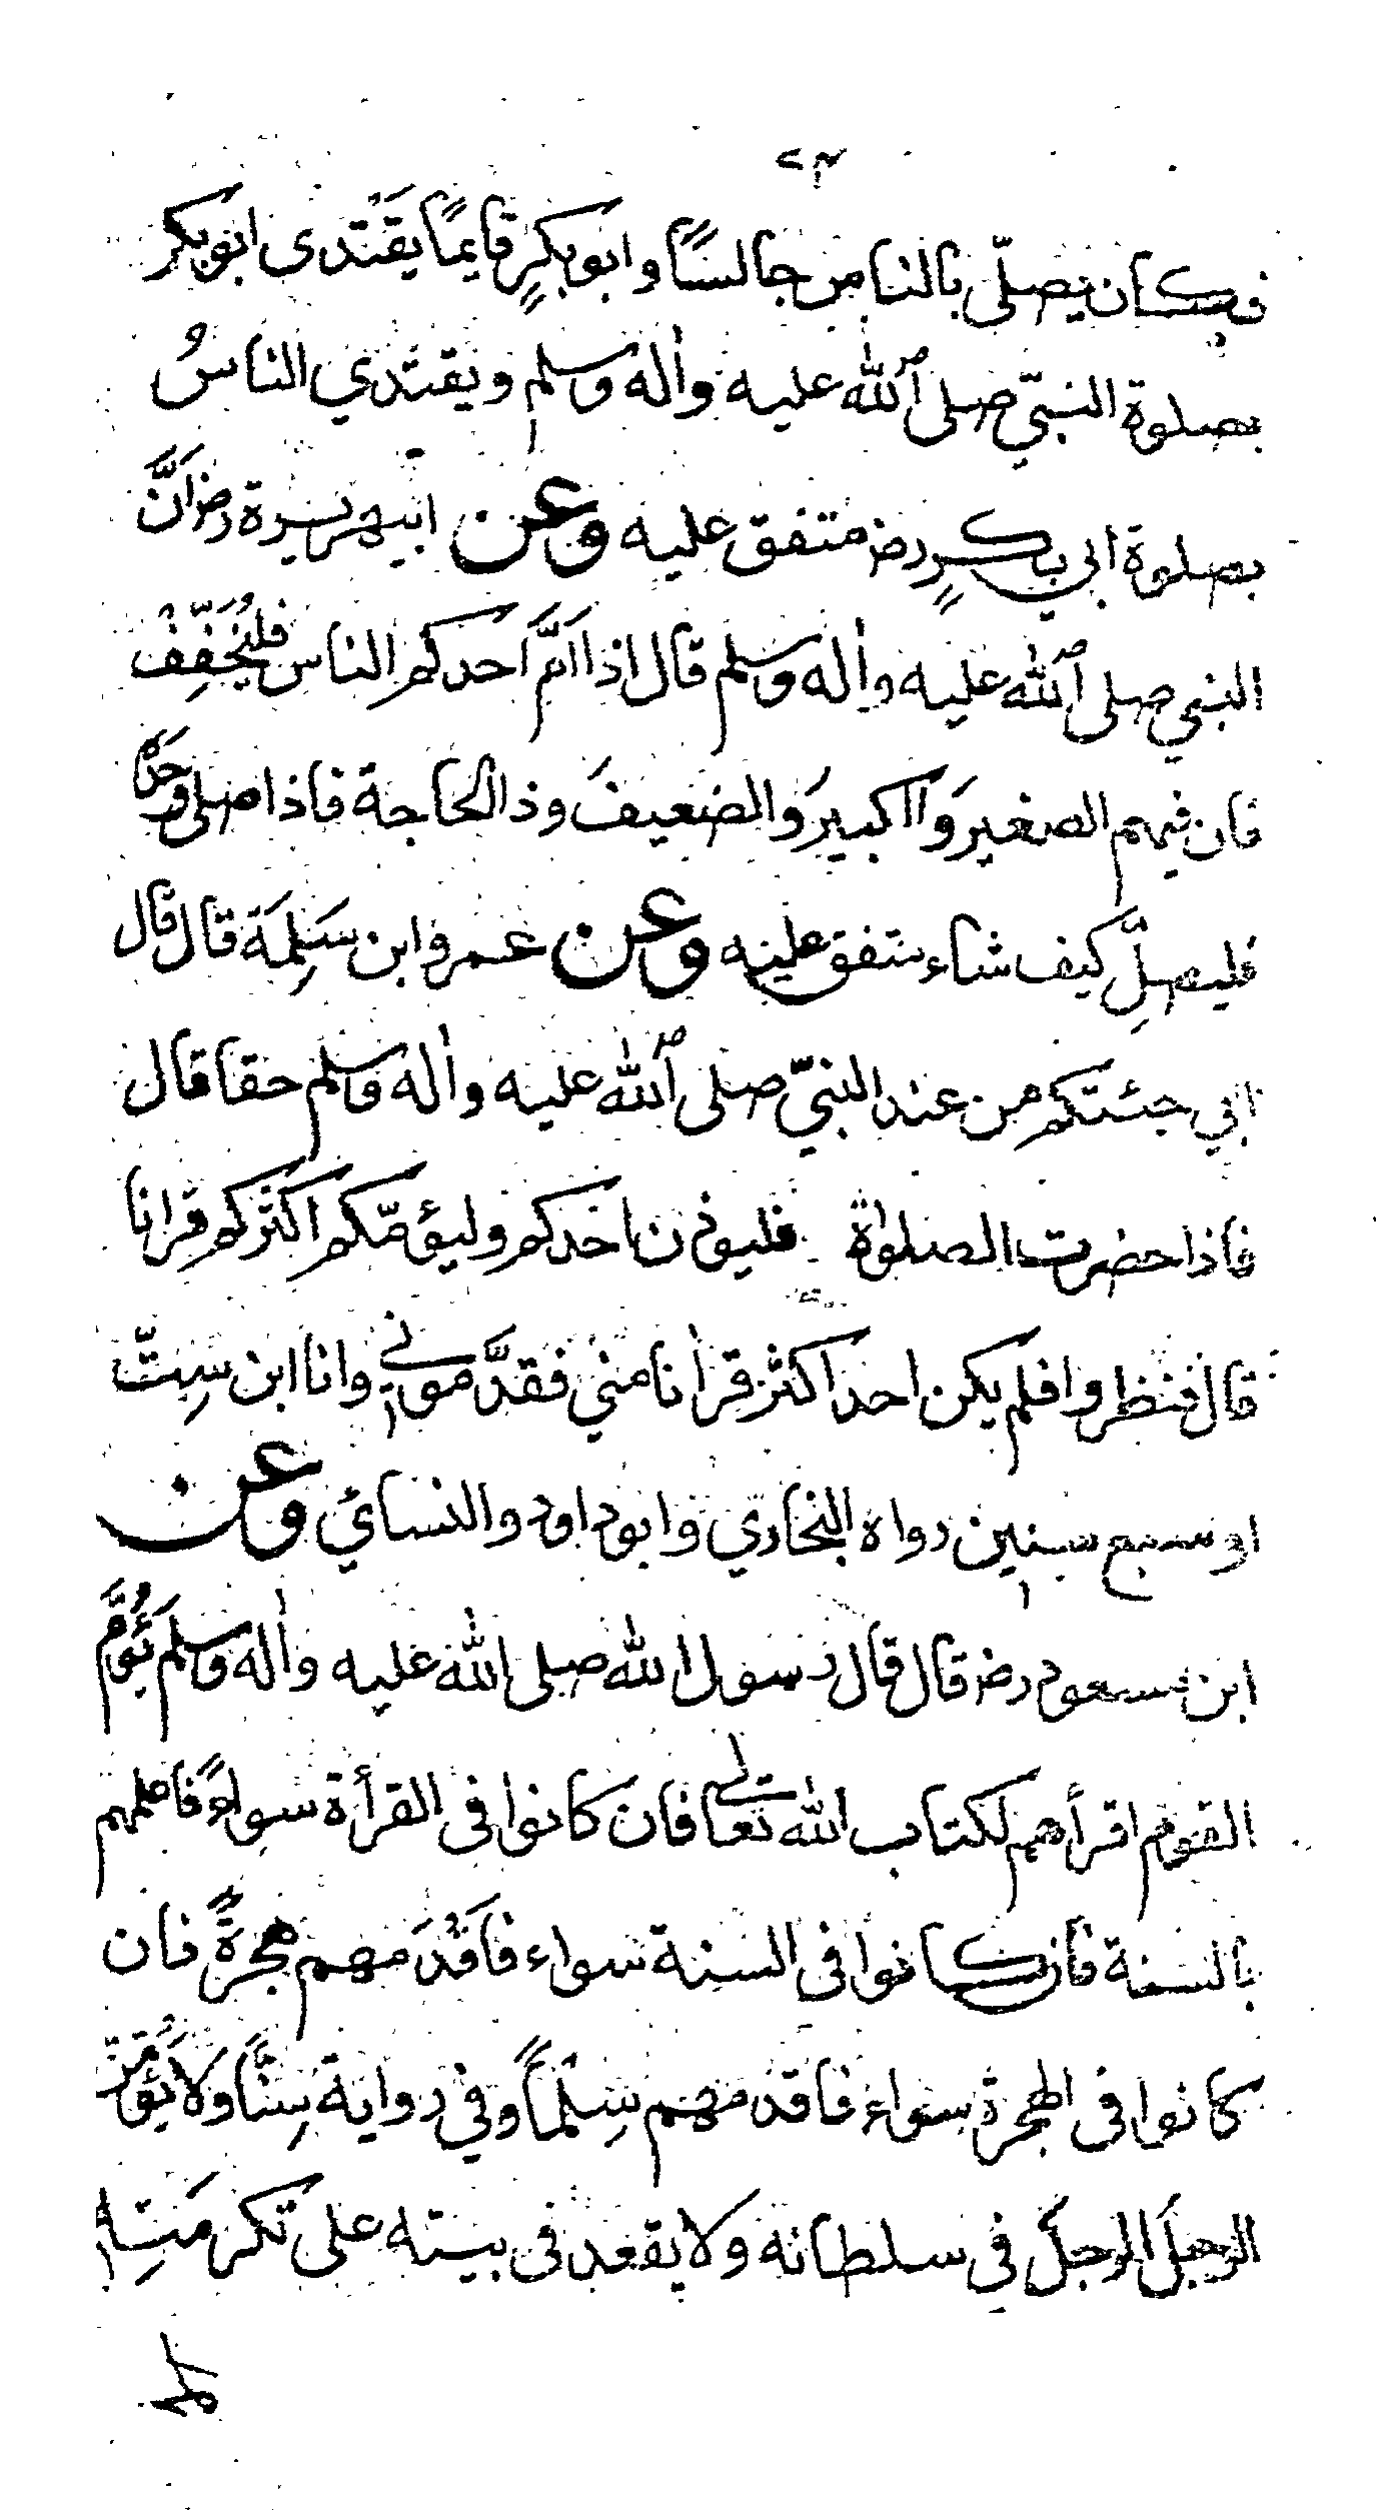 فكان يصلّي بالناس جالسًا وابو بكرٍ قايمًا يقتدى ابو بكر
بصلوة النبيّ صلى الله عليه واله وسلم ويقتدي الناسُ
بصلوة ابي بكرٍ رض متفق عليه وعن ابيهريرة رض انَّ
النبي صلى الله عليه واله وسلم قال اذا امَّ احدكم الناس فليُخَفِّفْ
فان فيهم الصغيرَ والكبيرَ والضعيفَ وذا الحاجة فاذا صلى وحدَهُ
فليصلِّ كيف شاء متفق عليه وعن عمرو ابن سَلِمَة قال قال
ابي جئتكم من عند النبيّ صلى الله عليه واله وسلم حقا قال
فاذا حضرت الصلوٰة فليوذن احدكم وليؤمّكم اكثركم قرانا
قال فنظروا فلم يكن احد اكثر قرانا مني فقدَّموني وانا ابن سِتّ
او سبع سنين رواه البخاري وابوداود والنسائي وعن
ابن مسعود رض قال قال رسول الله صلى الله عليه واله وسلم يَؤُمُّ
القوم اقرأهم لكتاب الله تعالى فان كانوا في القرأة سواءً فاعلمهم
بالسنة فان كانوا في السنة سواء فاَقْدَمهم هجرةً فان
كانوا في الهجرة سواء فاقدمهم سِلْماً وفي رواية سِنّاً ولا يَؤُمَّنَّ
الرجلُ الرجلَ في سلطانه ولا يقعد في بيته على تكرمَتِهِ